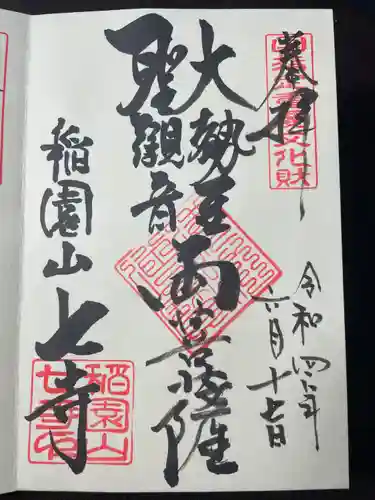 奉拝
令和四年
六月十七日
大勢至
聖観音
両菩薩
稲園山 七寺
稲園山
七寺印
文化財